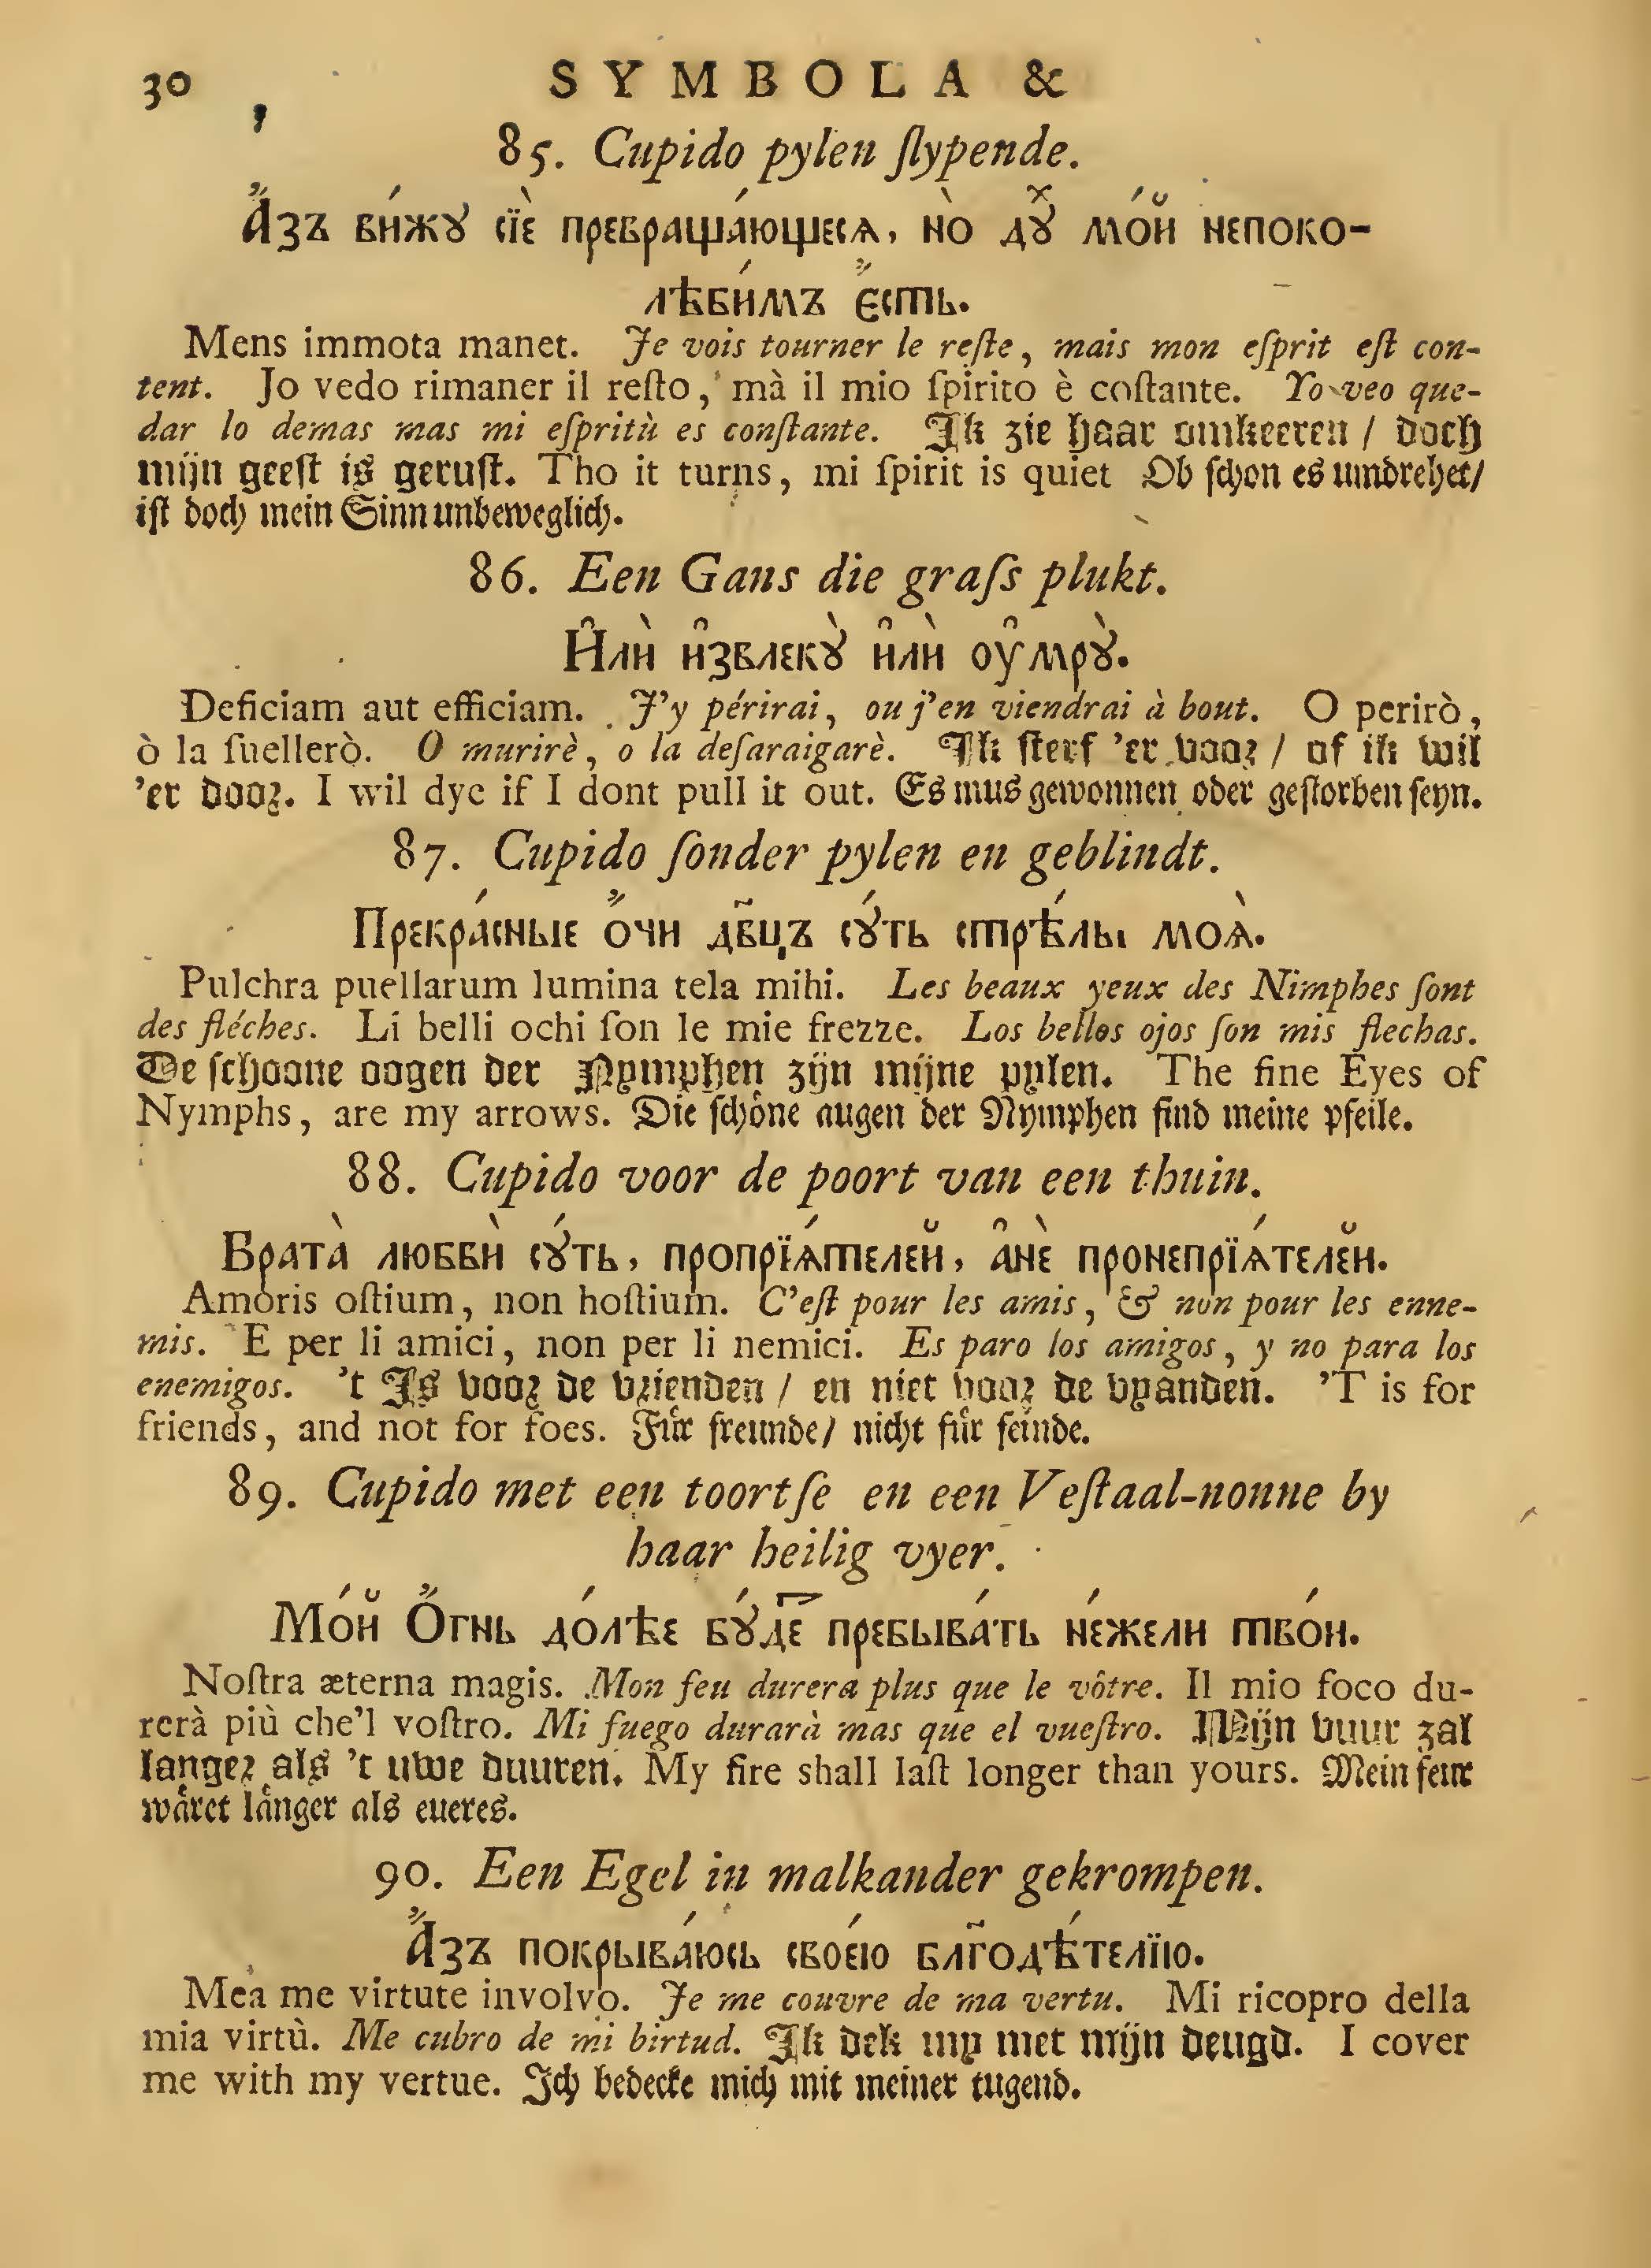 30 SYMBOLA &
85. Cupido pylen ſlypende.
А҆́зъ ви́жꙋ сїѐ превращаю́щесѧ, но̀ дꙋ́ⷯ мо́й непоко-
лѣби́мъ є҆́сть.
Mens immota manet. Je vois tourner le reſte, mais mon eſprit eſt con-
tent. Jo vedo rimaner il reſto, mà il mio ſpirito è coſtante. Yo veo que-
dar lo demas mas mi eſpritù es conſtante. Ik zie haar omkeeren / doch
mijn geeſt is geruſt. Tho it turns, mi ſpirit is quiet Ob ſchon es umdrehet/
iſt doch mein Sinn unbeweglich.
86. Een Gans die graſs plukt.
И҆лѝ и҆звлекꙋ̀ и҆лѝ оу҆мрꙋ̀.
Deficiam aut efficiam. J'y périrai, ou j'en viendrai à bout. O perirò,
ò la ſuellerò. O murirè, o la deſaraigarè. Ik ſterf 'er vooꝛ / of ik wil
'er dooꝛ. I wil dye if I dont pull it out. Es mus gewonnen oder geſtorben ſeyn.
87. Cupido ſonder pylen en geblindt.
Прекра́сные ѻ҆́чи дв҃цъ сꙋ́ть стрѣ́лы моѧ̀.
Pulchra puellarum lumina tela mihi. Les beaux yeux des Nimphes ſont
des fléches. Li belli ochi ſon le mie frezze. Los bellos ojos ſon mis flechas.
De ſchoone oogen der Nymphen zijn mijne pylen. The fine Eyes of
Nymphs, are my arrows. Die ſchoͤne augen der Nymphen ſind meine pfeile.
88. Cupido voor de poort van een thuin.
Врата̀ любвѝ сꙋ́ть, пропрїѧ́телей, а҆нѐ пронепрїѧ́телей.
Amoris oſtium, non hoſtium. C'eſt pour les amis, & non pour les enne-
mis. E per li amici, non per li nemici. Es paro los amigos, y no para los
enemigos. 't Is vooꝛ de vꝛienden / en niet vooꝛ de vyanden. 'T is for
friends, and not for foes. Fuͤr freunde/ nicht fuͤr feinde.
89. Cupido met een toortſe en een Veſtaal-nonne by
haar heilig vyer.
Мо́й Ѻ҆́гнь до́лѣе бꙋ́деⷮ пребыва́ть не́жели тво́и.
Noſtra æterna magis. Mon feu durera plus que le vôtre. Il mio foco du-
rerà più che'l voſtro. Mi fuego durarà mas que el vueſtro. Mijn vuur zal
langeꝛ als 't uwe duuren. My fire shall laſt longer than yours. Mein feur
waͤret laͤnger als eueres.
90. Een Egel in malkander gekrompen.
А҆́зъ покрыва́юсь свое́ю бл҃годѣ́телїю.
Mea me virtute involvo. Je me couvre de ma vertu. Mi ricopro della
mia virtù. Me cubro de mi birtud. Ik dek my met mijn deugd. I cover
me with my vertue. Ich bedecke mich mit meiner tugend.